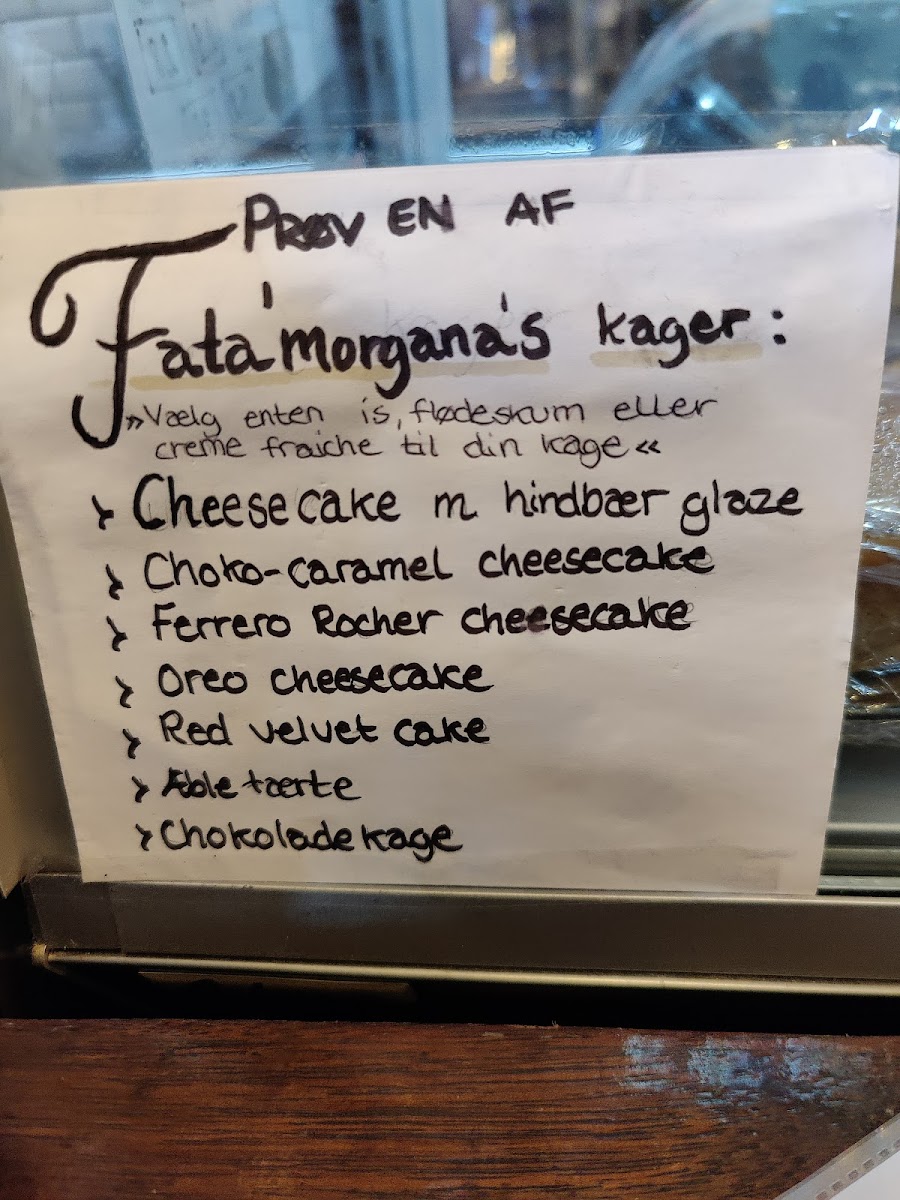 PRØV EN AF
Fata'morgana's kager:
»Vælg enten is, flødeskum eller
creme fraiche til din kage«
Cheesecake m hindbær glaze
Choko-caramel cheesecake
Ferrero Rocher cheesecake
Oreo cheesecake
Red velvet cake
Æble tærte
Chokolade kage